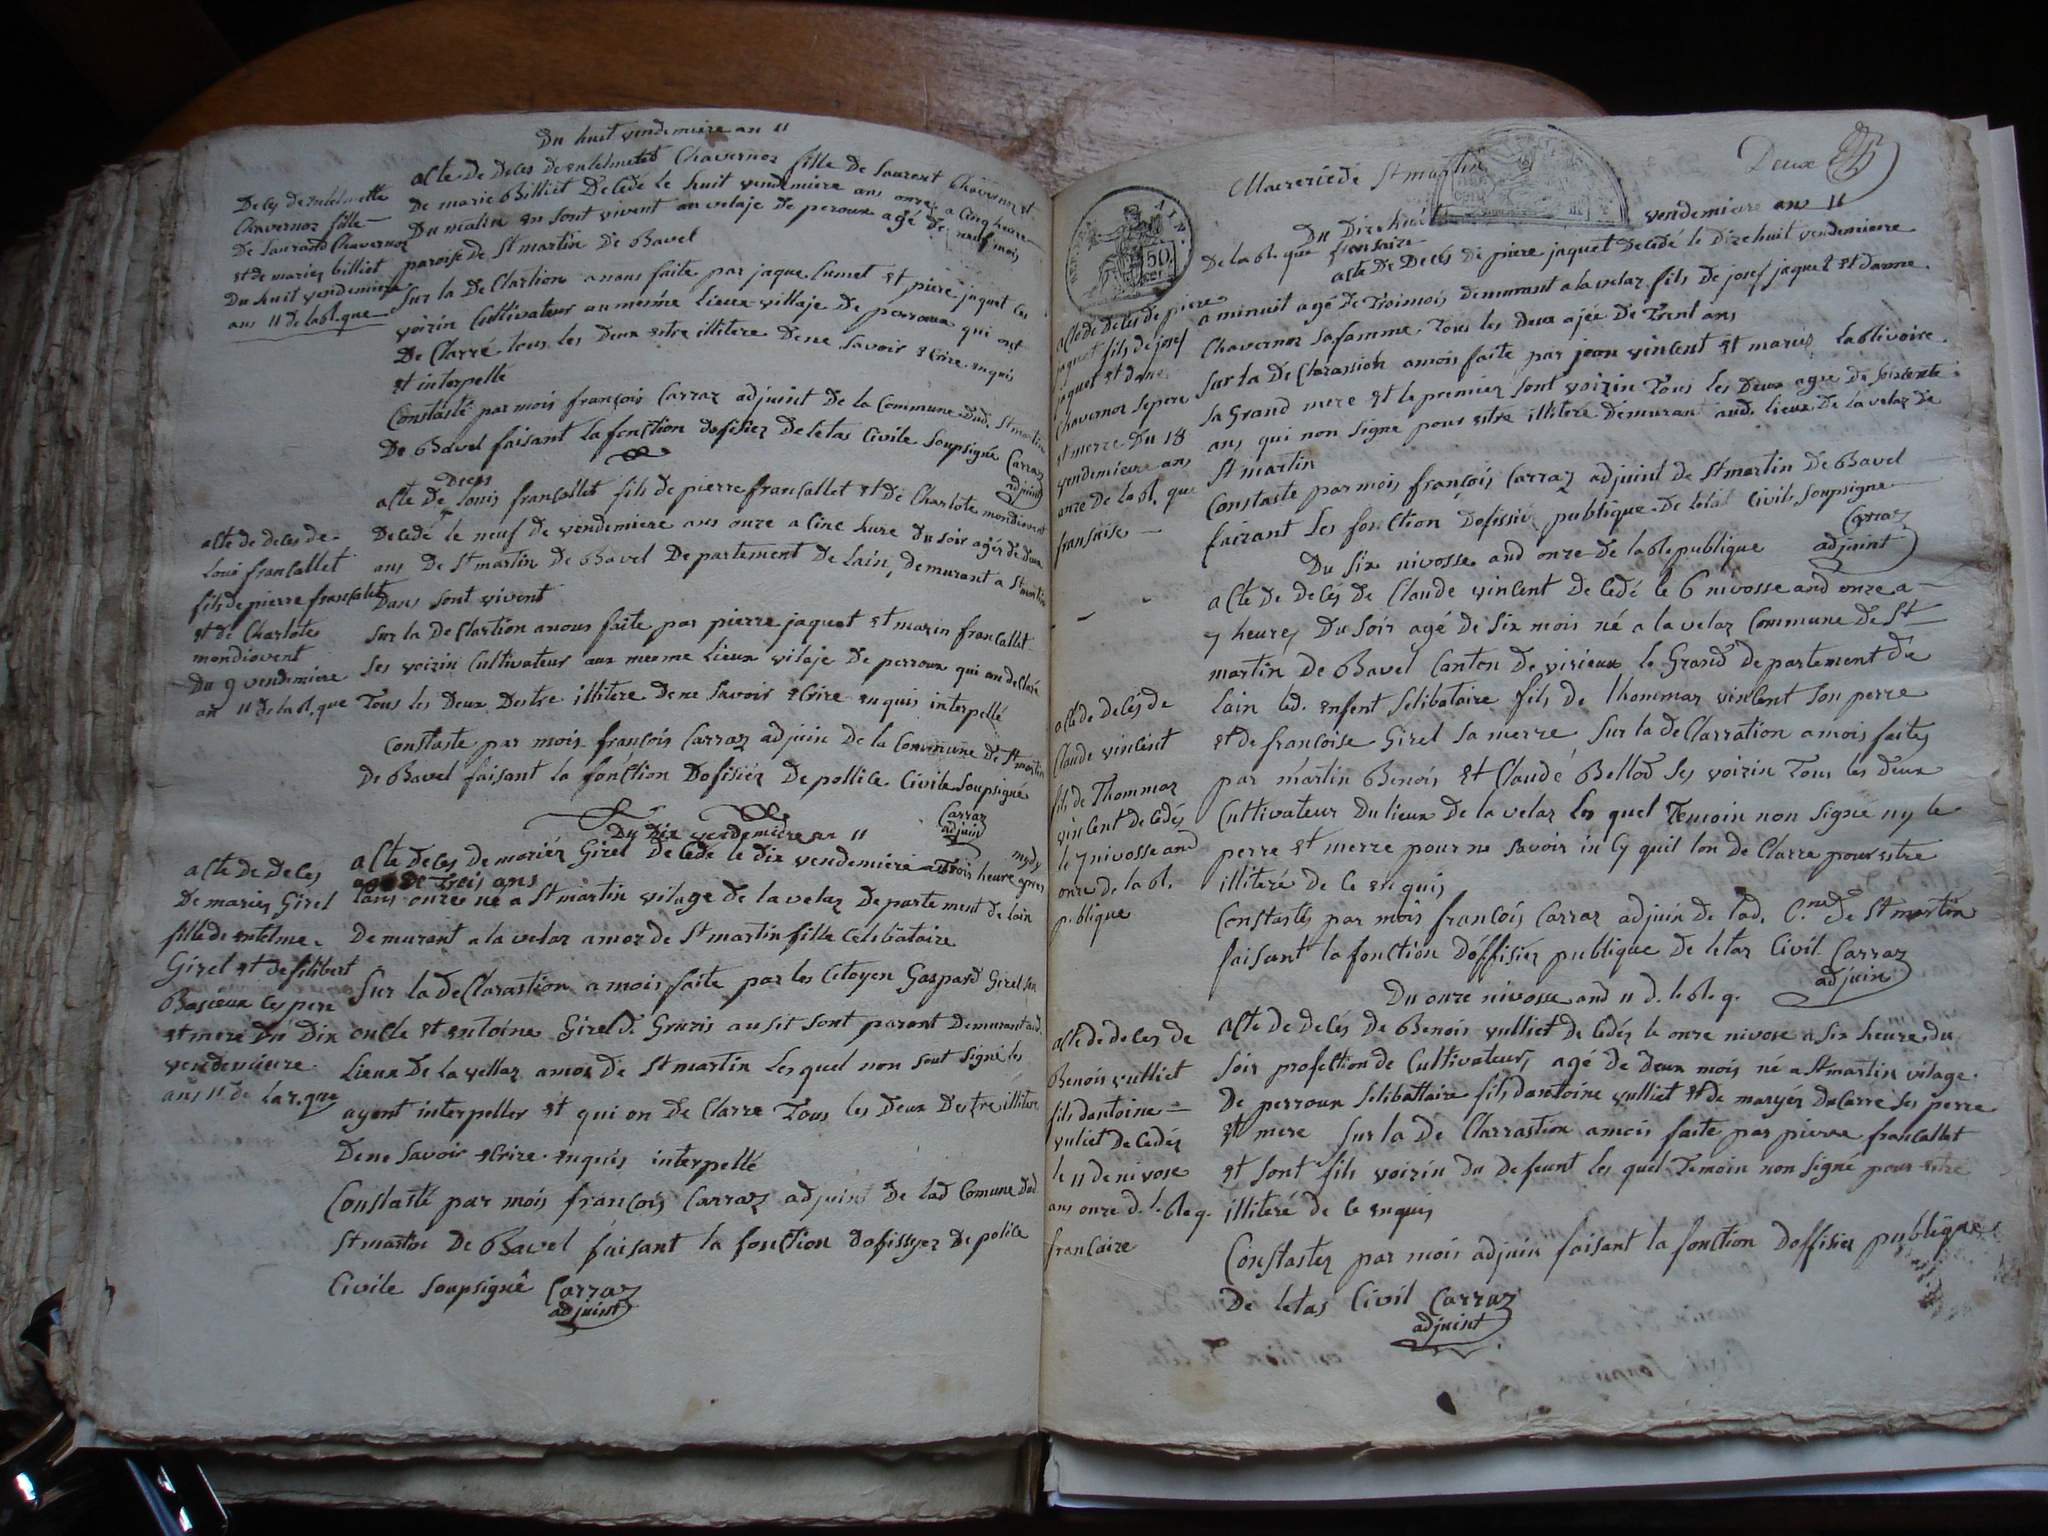 Du huit vendemiere an 11
acte de deces de entelmeted Chavernoz fille de Laurent Chavernoz et
de marie Billiet decedé le huit vendemiere ans onze a cinq heure
du matin en sont vivent au velaje de peroux agé de neuf mois
paroise de St martin de Bavel
Sur la declartion a nous faite par jaque Cumet et piere jaquet ces
voizin Cultivateur au mesme lieux villaje de perroux qui ont
declarré tous les deux estre illitere de ne savoir ecrire enquis
et interpellé
Constaté par mois françois Carraz adjuint de la Commune dud. St martin
De Bavel faisant la fonction dofisiez de letas Civile Soupsigné Carraz
adjuint
Deces de entelmette
Chavernoz fille
De Laurand Chavernoz
et de mariez billiet
Du huit vendemiere
ans 11 de la bl. que
deces
acte de Louis francallet fils de pierre francallet et de Charlote mondiovent
Decedé le neuf de vendemiere ans onze a cinc hure du soir agés de deux
ans de St martin de Bavel Departement de Lain, demurant a St martin
Dans sont vivent
Sur la declartion a nous faite par pierre jaquet et marin francallet
ses voizin Cultivateur aux mesme lieux vilaje de perroux qui an declaré
Tous les deux Destre illitere de ne savoir ecrire enquis interpellé
Constaste par mois françois Carraz adjuin de la Commune de St martin
De Bavel faisant la fonction Dofisiéz De pollice Civile Soupsigné
Carraz
adjuin
acte de deces de
Loui francallet
fils de pierre francallet
et de Charlote
mondiovent
Du 9 vendemiere
an 11 de la bl. que
Du Dix vendemiere an 11
acte deces de mariéz Girel Decedé le dix vendemiere a Trois heure apres mydy
agé de trois ans
lans onze né a St martin vilage de la velaz Departement de lain
Demurant a la velaz amoz de St martin fille Celibataire
Sur la declarastion a mois faite par les Citoyen Gaspard Girel son
oncle et entoine Girel d. Gruzis ausit sont parant Demurant aud.
Lieux De la vellaz amoz de St martin Lesquel non sout signé les
ayent interpeller et qui on de Clarre Tous les Deux Destre illitere
Dene Savoir ecrire enquis interpellé
Constasté par mois françois Carraz adjuint de lad Comune dud
St martin De Bavel faisant la fonction dofissyez De police
Civile Soupsigné Carraz
adjuint
acte de deces
De mariez Girel
fille de entelme
Girel et de filibert
Bascieux ces pere
et mere Du Dix
vendemiere
ans 11 de la r. que
Maererie de St martin
Deux
AIN.
50
Du Dixhuit vendemiere an 11
De la bl. que fransaire
acte De Deces de piere jaquet decedé le Dixehuit vendemiere
a minuit agé de Troi mois demurant a la velaz fils de josef jaquet et danne
Chavernoz sa famme Tous les deux ajée de Trent ans
Sur la declarassion amois faite par jean vincent et marie Lablivoire
sa Grand mere et le premier sont voizin Tous les deux age de soixente
ans qui non signe pour estre illiteré demurant aud. lieux de la velaz de
St martin
Constaste par mois françois Carraz adjuint de St martin de Bavel
faizant les fonction Dofissiez publique de letat Civil Soupsigne
Carraz
adjuint
acte de deces de piere
jaquet fils de josef
jaquet et dane
Chavernoz sepere
et merre Du 18
vendemiere ans
onze de la bl. que
fransaise
Du six nivosse and onze de la bl publique
acte de deces de Claude vincent decedé le 6 nivosse and onze a
7 heurez Du soir agé de six mois né a la velaz Commune de St
martin de Bavel Canton de virieux le Grand departement du
Lain led. enfent selibataire fils de Thommaz vincent son perre
et de francoise Girel sa merre Sur la declarration a mois faites
par martin Benois et Claude Bellod ses voizin Tous les deux
Cultivateur du lieux de la velaz les quel Temoin non signé ny le
perre et merre pour ne savoir in Cy quil lon de Clarre pour estre
illiteré de ce enquis
Constastés par mois françois Carraz adjuin de lad. C.ne de St martin
faisant la fonction d'offisiez publique de letaz Civil Carraz
adjuin
acte de decés de
Claude vincent
fils de Thommaz
vincent decédés
le 7 nivosse and
onze de la bl.
publique
Du onze nivosse and 11 d. le bl. q.
acte de decés de Benois vulliet decedéz le onze nivose a six heure du
soir profection de Cultivateur, agé de deux mois né a St martin vilage
de perroux selibattaire fils dantoine vulliet et de maryéz Ducarre ses perre
et mere Sur la declarrastion a mois faite par pierre francallet
et sont fils voizin du defeunt les quel Temoin non signé pour estre
illiteré de ce enquis
Constastez par mois adjuin faisant la fonction doffisiez publique
De letas Civil Carraz
adjuint
acte de deces de
Benois vulliet
fils dantoine
vuliet decedéz
le 11 de nivose
ans onze d. l. bl. q.
francaire